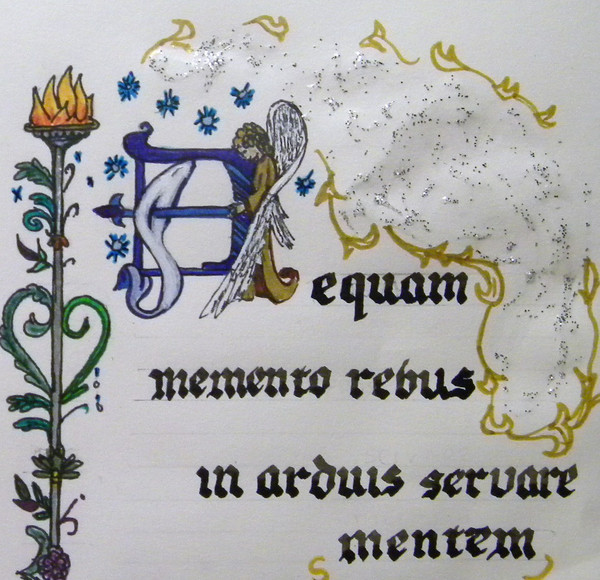 Aequam
memento rebus
in arduis servare
mentem